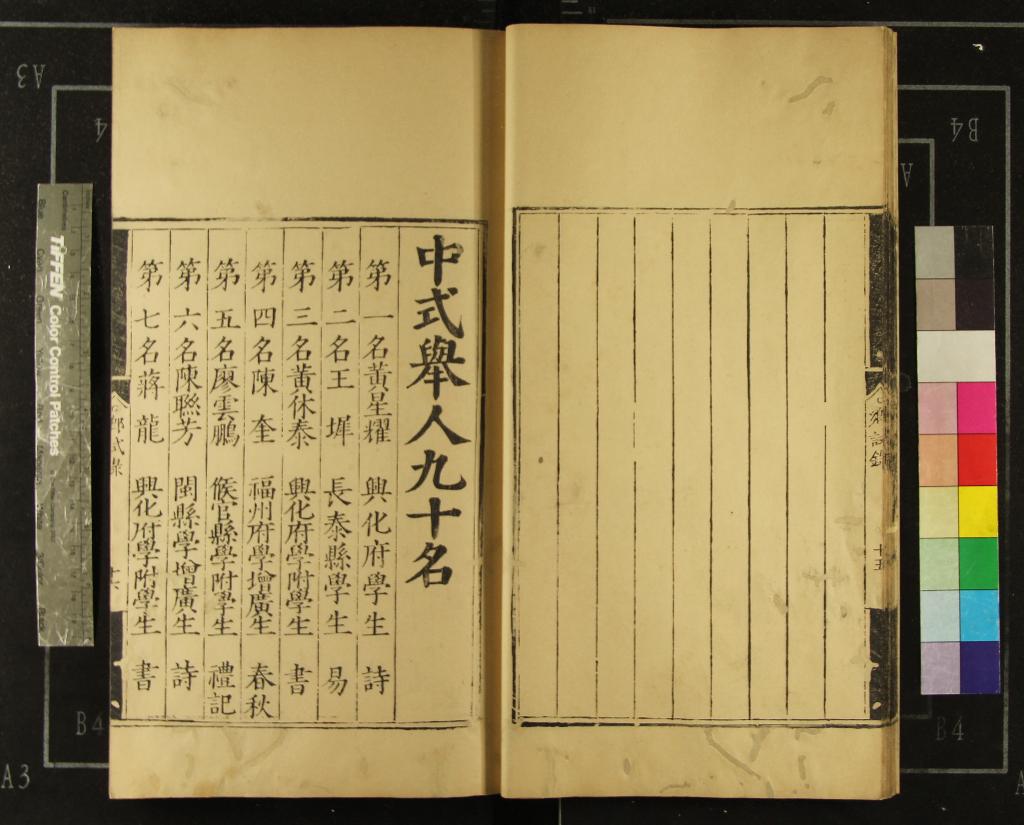 中式舉人九十名
第一名黃星耀 興化府學生 詩
第二名王墀 長泰縣學生 易
第三名黃休泰 興化府學附學生 書
第四名陳奎 福州府學增廣生 春秋
第五名廖雲鵬 候官縣學附學生 禮記
第六名陳聯芳 閩縣學增廣生 詩
第七名蔣龍 興化府學附學生 書
鄉試錄
十六
鄉試錄
十五
TIFFEN Color Control Patches
A3
4
B4
A3
B4
A
B4